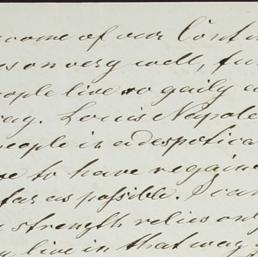 come of our Cont
es on very well, fu
ople live so gaily a
ay. Louis Napole
people is a despotica
e to have regaine
far as possible. I can
strength relies on
live in that way